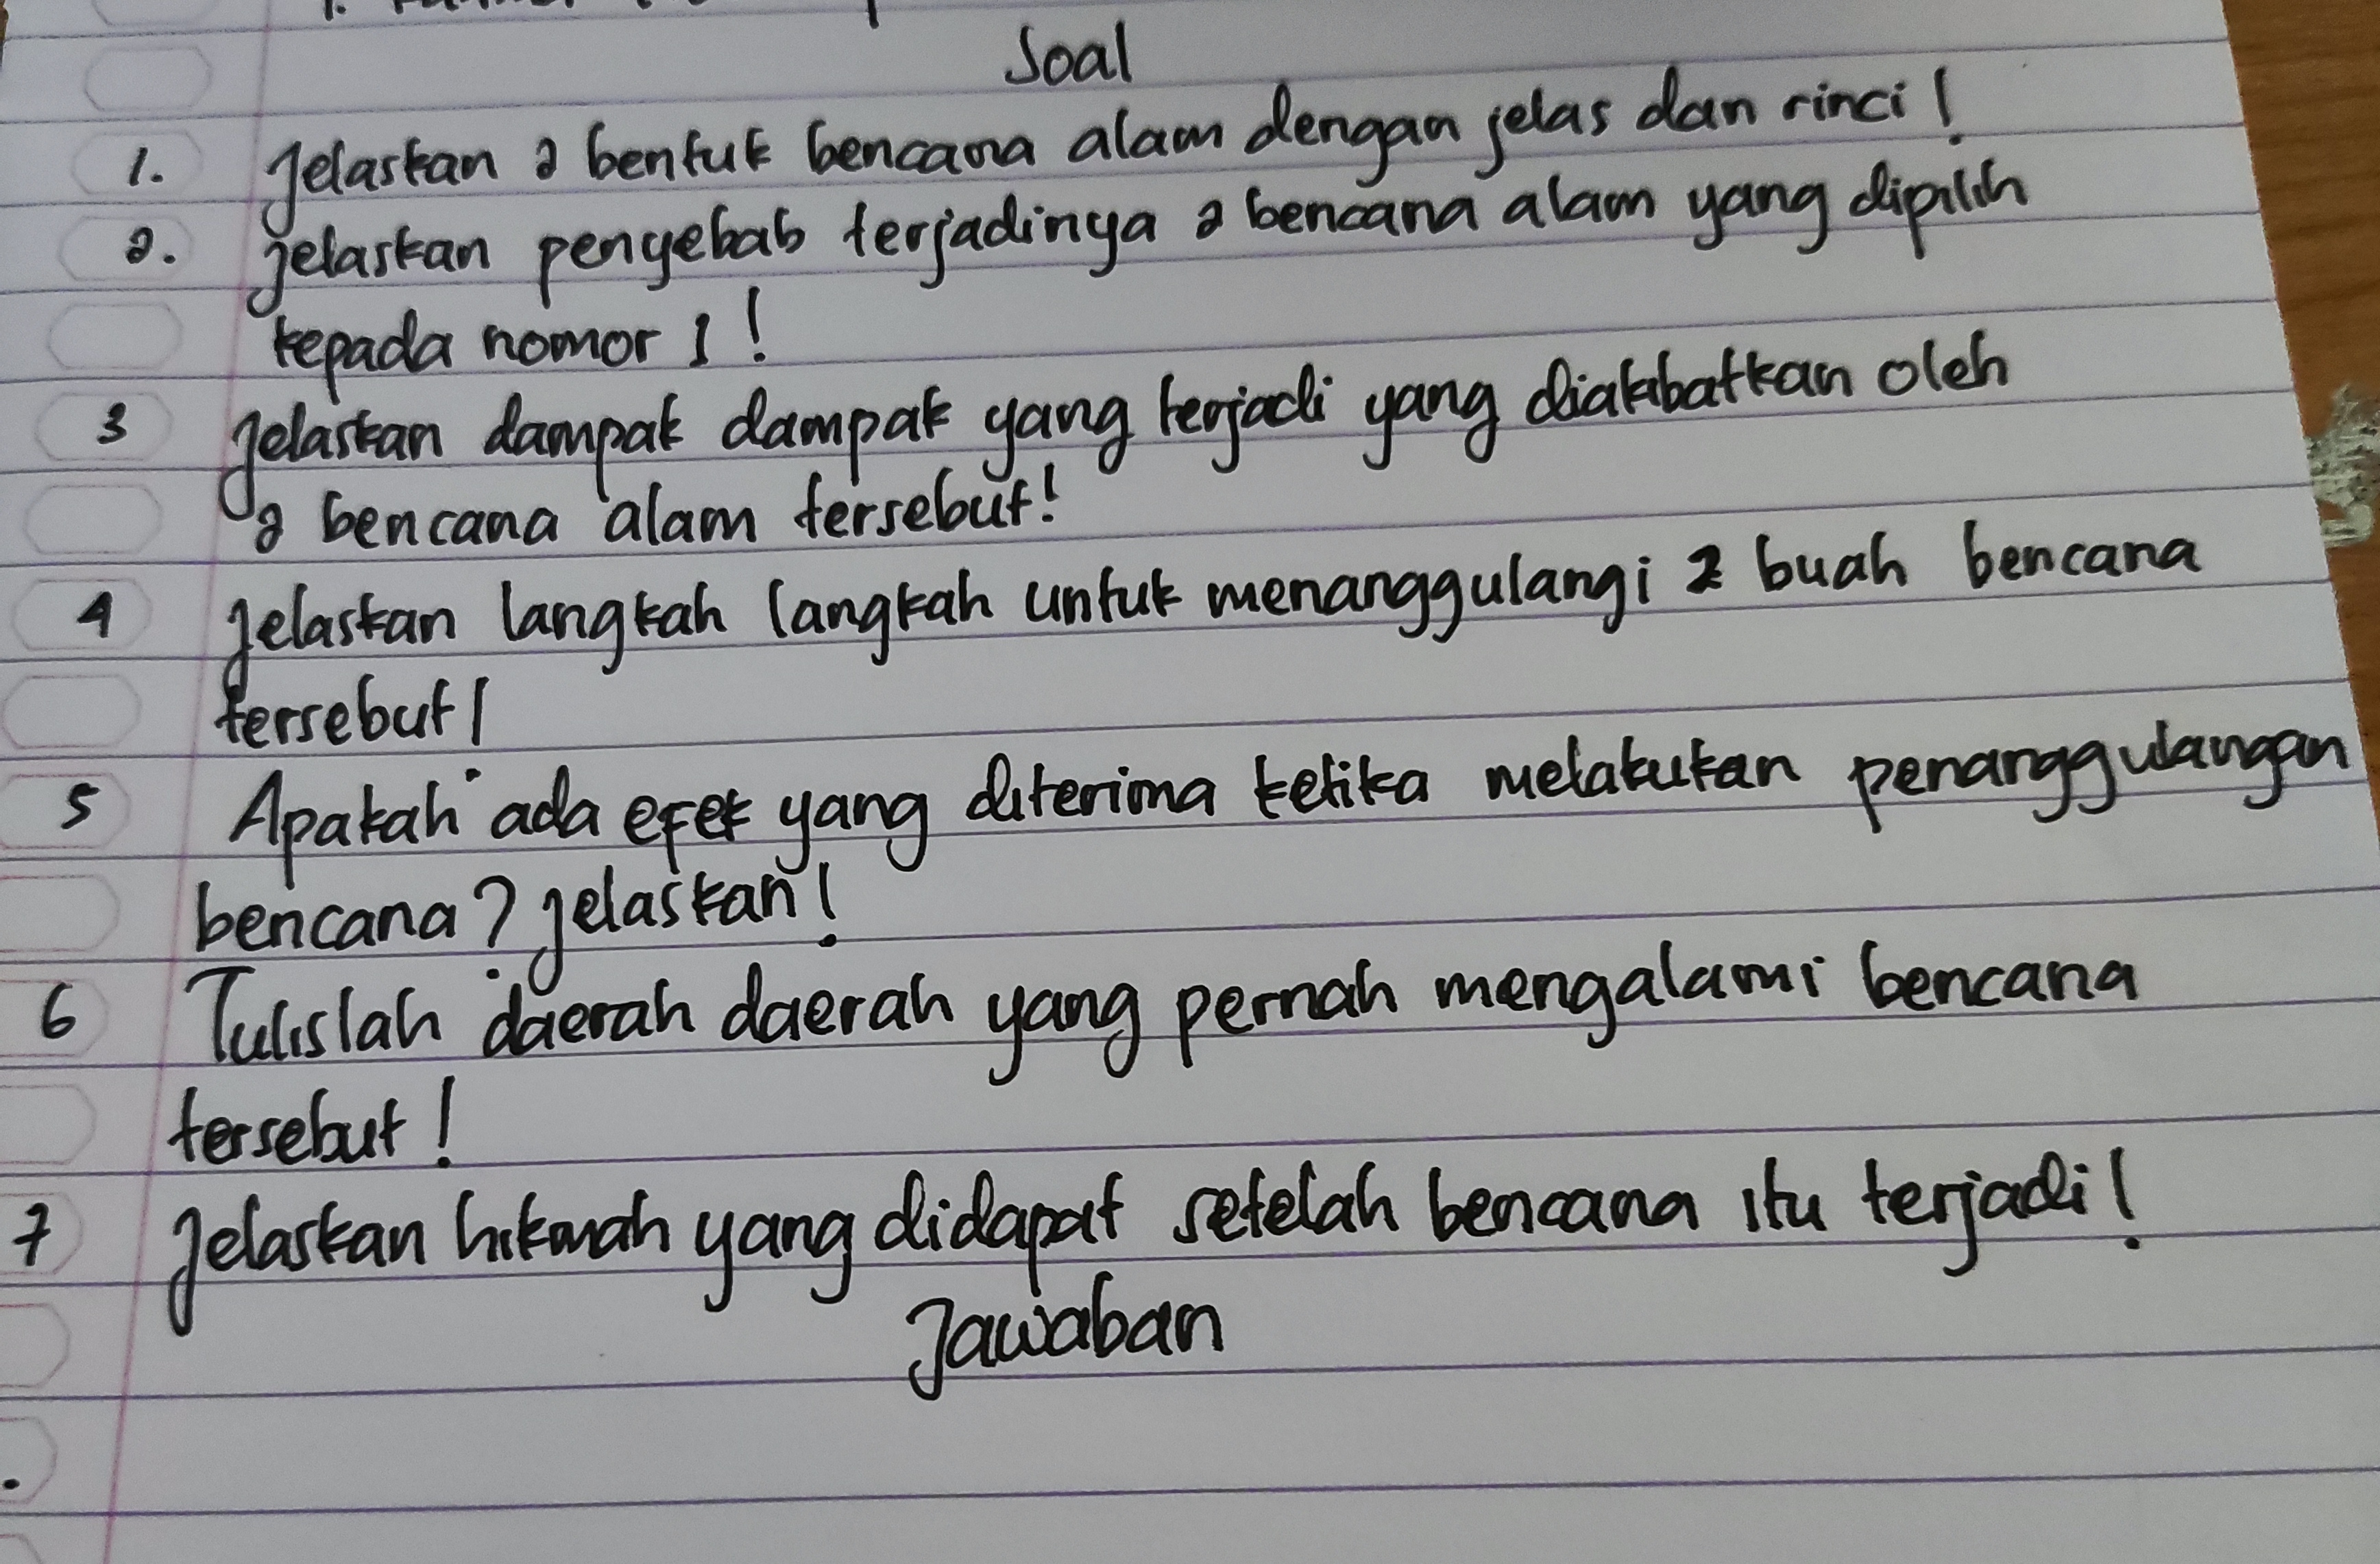 Soal
1. Jelaskan 2 bentuk bencana alam dengan jelas dan rinci!
2. jelaskan penyebab terjadinya 2 bencana alam yang dipilih
kepada nomor 1!
3 Jelaskan dampak dampak yang terjadi yang diakibatkan oleh
2 bencana alam tersebut!
4 Jelaskan langkah langkah untuk menanggulangi 2 buah bencana
tersebut!
5 Apakah ada efek yang diterima ketika melakukan penanggulangan
bencana? jelaskan!
6 Tulislah daerah daerah yang pernah mengalami bencana
tersebut!
7 Jelaskan hikmah yang didapat setelah bencana itu terjadi!
Jawaban